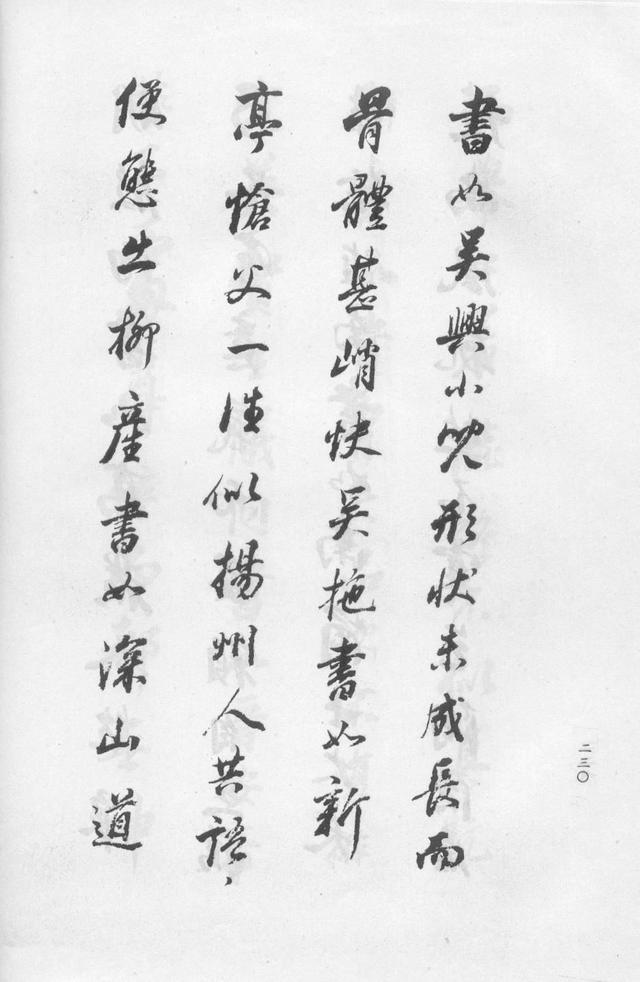 書如吳興小兒形狀未成長而
骨體甚峭快吳施書如新
亭愴父一往似揚州人共語、
便態出柳產書如深山道
二三〇